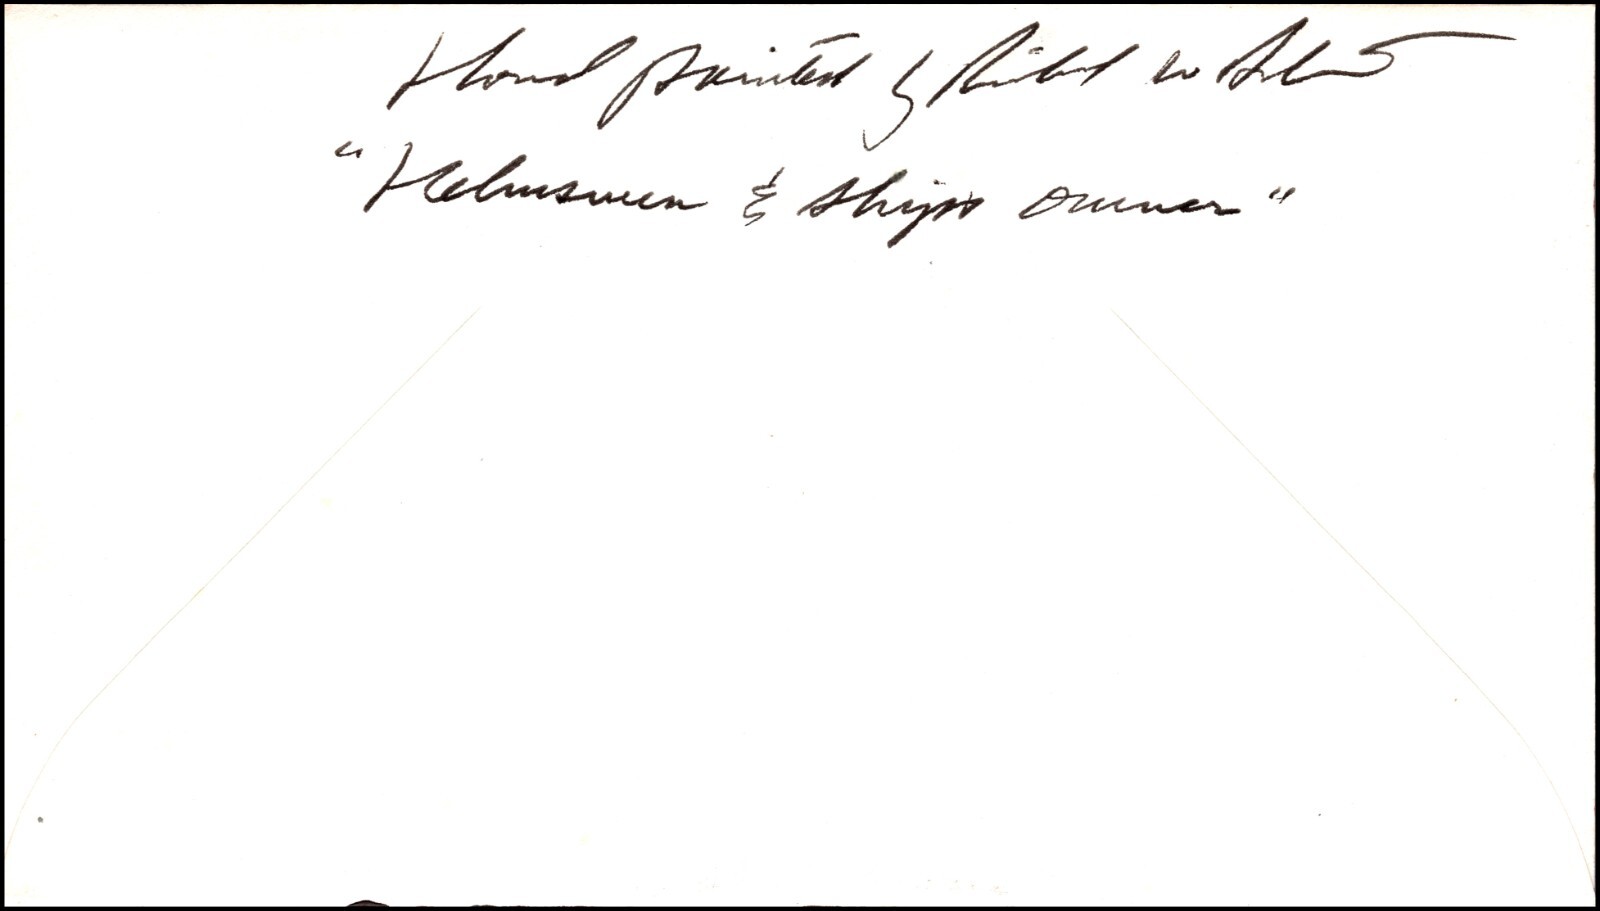 Hand painted by Richard w
"Helmsmen & Ships owner"